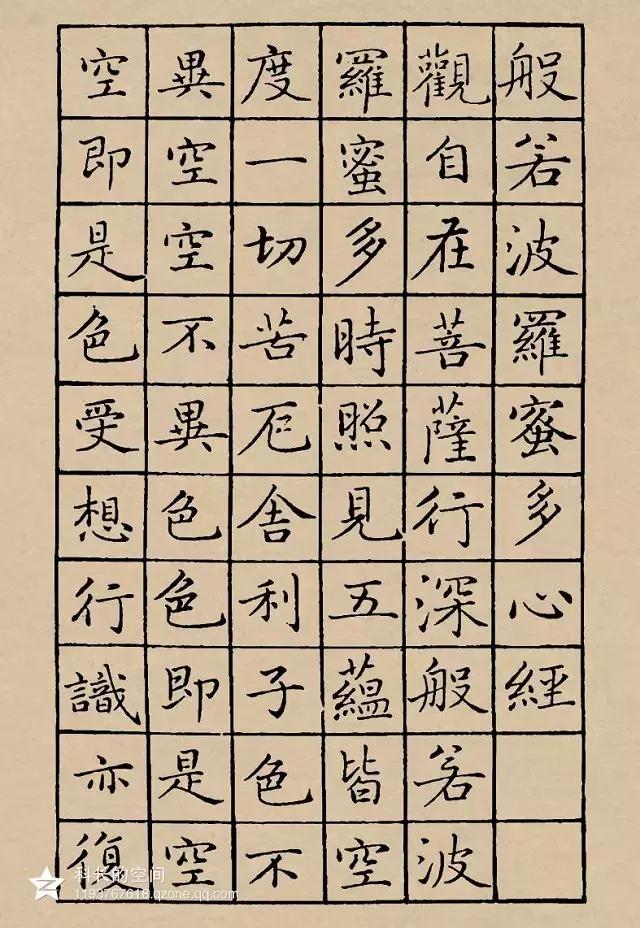 般若波羅蜜多心經
觀自在菩薩行深般若波
羅蜜多時照見五蘊皆空
度一切苦厄舍利子色不
異空空不異色色即是空
空即是色受想行識亦復
科长的空间
1193767618.qzone.qq.com